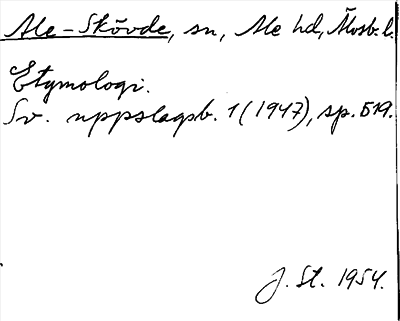 Ale-Skövde, sn, Ale hd, Älvsb. l.
Etymologi.
Sv. uppslagsb. 1 (1947), sp. 519.
J. St. 1954.